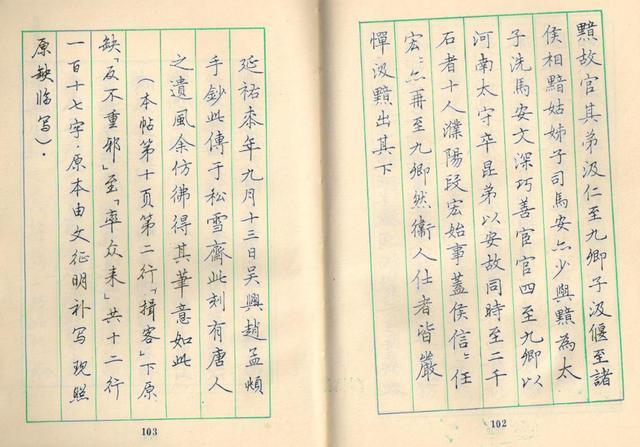 黯故官其弟汲仁至九卿子汲偃至諸
侯相黯姑姊子司馬安亦少與黯為太
子洗馬安文深巧善宦官四至九卿以
河南太守卒昆弟以安故同時至二千
石者十人濮陽段宏始事蓋侯信〻任
宏〻亦再至九卿然衞人仕者皆嚴
憚汲黯出其下
102
延祐柒年九月十三日吳興趙孟頫
手鈔此傳于松雪齋此刻有唐人
之遺風余仿彿得其筆意如此
(本帖第十页第二行「揖客」下原
缺「反不重邪」至「率众来」共十二行
一百十七字·原本由文征明补写现照
原缺临写)·
103